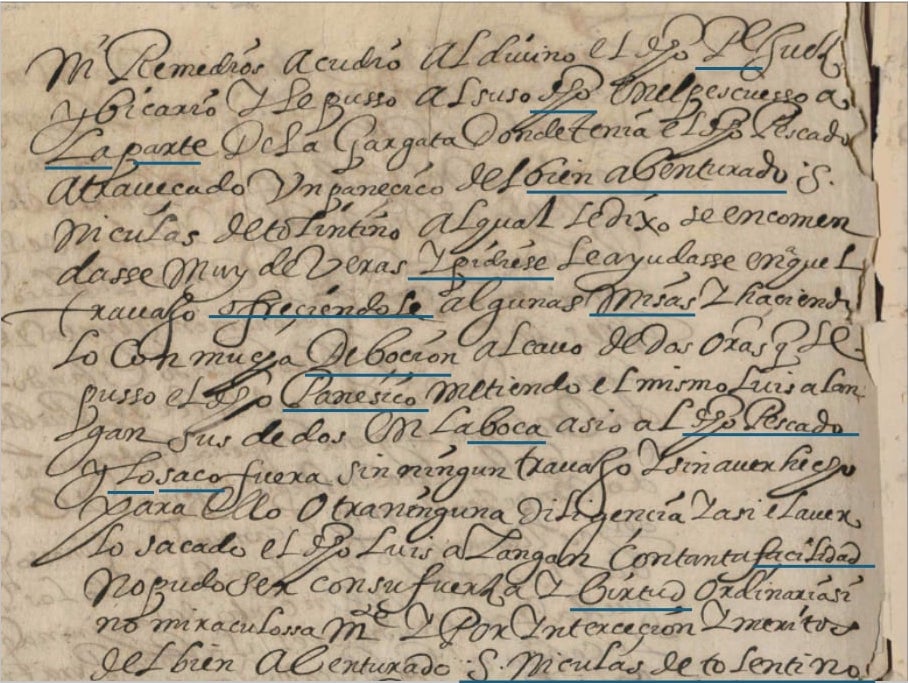 ni Remedios acudio al divino el dho Pe Juez
y bicario y le pusso al suso dho en el pescuesso a
La parte de la Gargata donde tenia el dho Pescado
atravecado Un panecico del bien abenturado S.
Niculas de tolintino al qual le dixo se encomen
dasse Muy de Veras y pidiese le ayudasse en aquel
travaxo ofreciendole algunas misas y haciendo
lo Con mucha Deboción al cavo de dos oras q le
pusso el dho Panesico metiendo el mismo Luis alan
gan sus dedos en la boca asio al dho Pescado
y lo saco fuera sin ningun travaxo y sin aver hecho
para ello otra ninguna diligencia y asi el aver
lo sacado el dho Luis alangan Con tanta facilidad
no pudo ser con su fuerza y birtud Ordinaria si
no miraculossa mte y Por Interceçion y meritos
del bien Abenturado S. Niculas de tolentino